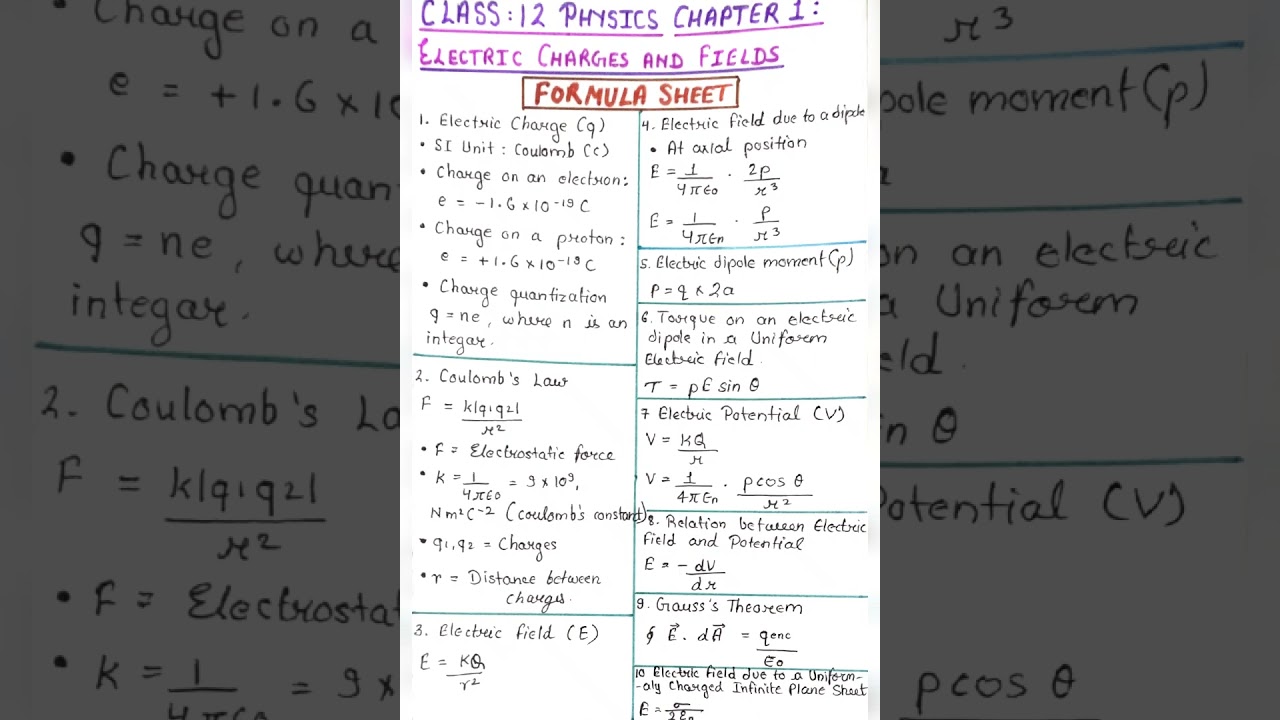 CLASS:12 PHYSICS CHAPTER 1:
ELECTRIC CHARGES AND FIELDS
FORMULA SHEET
1. Electric Charge (q)
• SI Unit : Coulomb (C)
• Charge on an electron:
e = -1.6 × 10⁻¹⁹ C
• Charge on a proton :
e = +1.6 × 10⁻¹⁹ C
• Charge quantization
q = ne, where n is an
integar.
2. Coulomb's Law
F = k|q1q2|
r²
• F = Electrostatic force
• k = 1/4πε0 = 9 × 10⁹,
Nm²C⁻² (coulomb's constant)
• q1, q2 = Charges
• r = Distance between
charges.
3. Electric field (E)
E = KQ
r²
4. Electric field due to a dipole
• At axial position
E = 1/4πε0 . 2p/r³
E = 1/4πε0 . p/r³
5. Electric dipole moment (p)
P = q × 2a
6. Torque on an electric
dipole in a Uniform
Electric field.
τ = pE sin θ
7 Electric Potential (V)
V = KQ
r
V = 1/4πε0 . pcos θ/r²
8. Relation between Electric
field and Potential
E = - dV/dr
9. Gauss's Theorem
∮ E⃗ . dA⃗ = qenc/ε0
10 Electric field due to a Uniform-
-aly Charged Infinite Plane Sheet
E = σ/2ε0
Charge on a
e = +1.6 × 10
• Charge quan
q = ne, where
integar.
2. Coulomb's La
F = k|q1q2|
r²
• F = Electrostat
• k = 1 = 9 ×
r³
pole moment (p)
on an electric
a Uniform
eld.
n θ
otential (V)
pcos θ